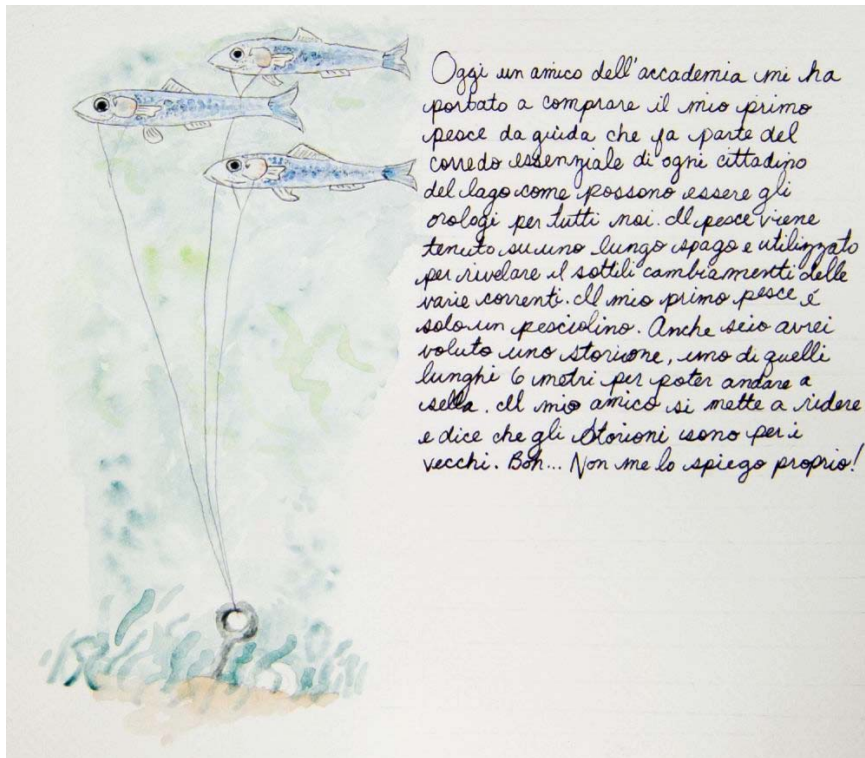 Oggi un amico dell'accademia mi ha
portato a comprare il mio primo
pesce da guida che fa parte del
corredo essenziale di ogni cittadino
del lago come possono essere gli
orologi per tutti noi. Il pesce viene
tenuto su uno lungo spago e utilizzato
per rivelare il sottili cambiamenti delle
varie correnti. Il mio primo pesce é
solo un pesciolino. Anche se io avrei
voluto uno storione, uno di quelli
lunghi 6 metri per poter andare a
sella. Il mio amico si mette a ridere
e dice che gli storioni sono per i
vecchi. Boh... Non me lo spiego proprio!